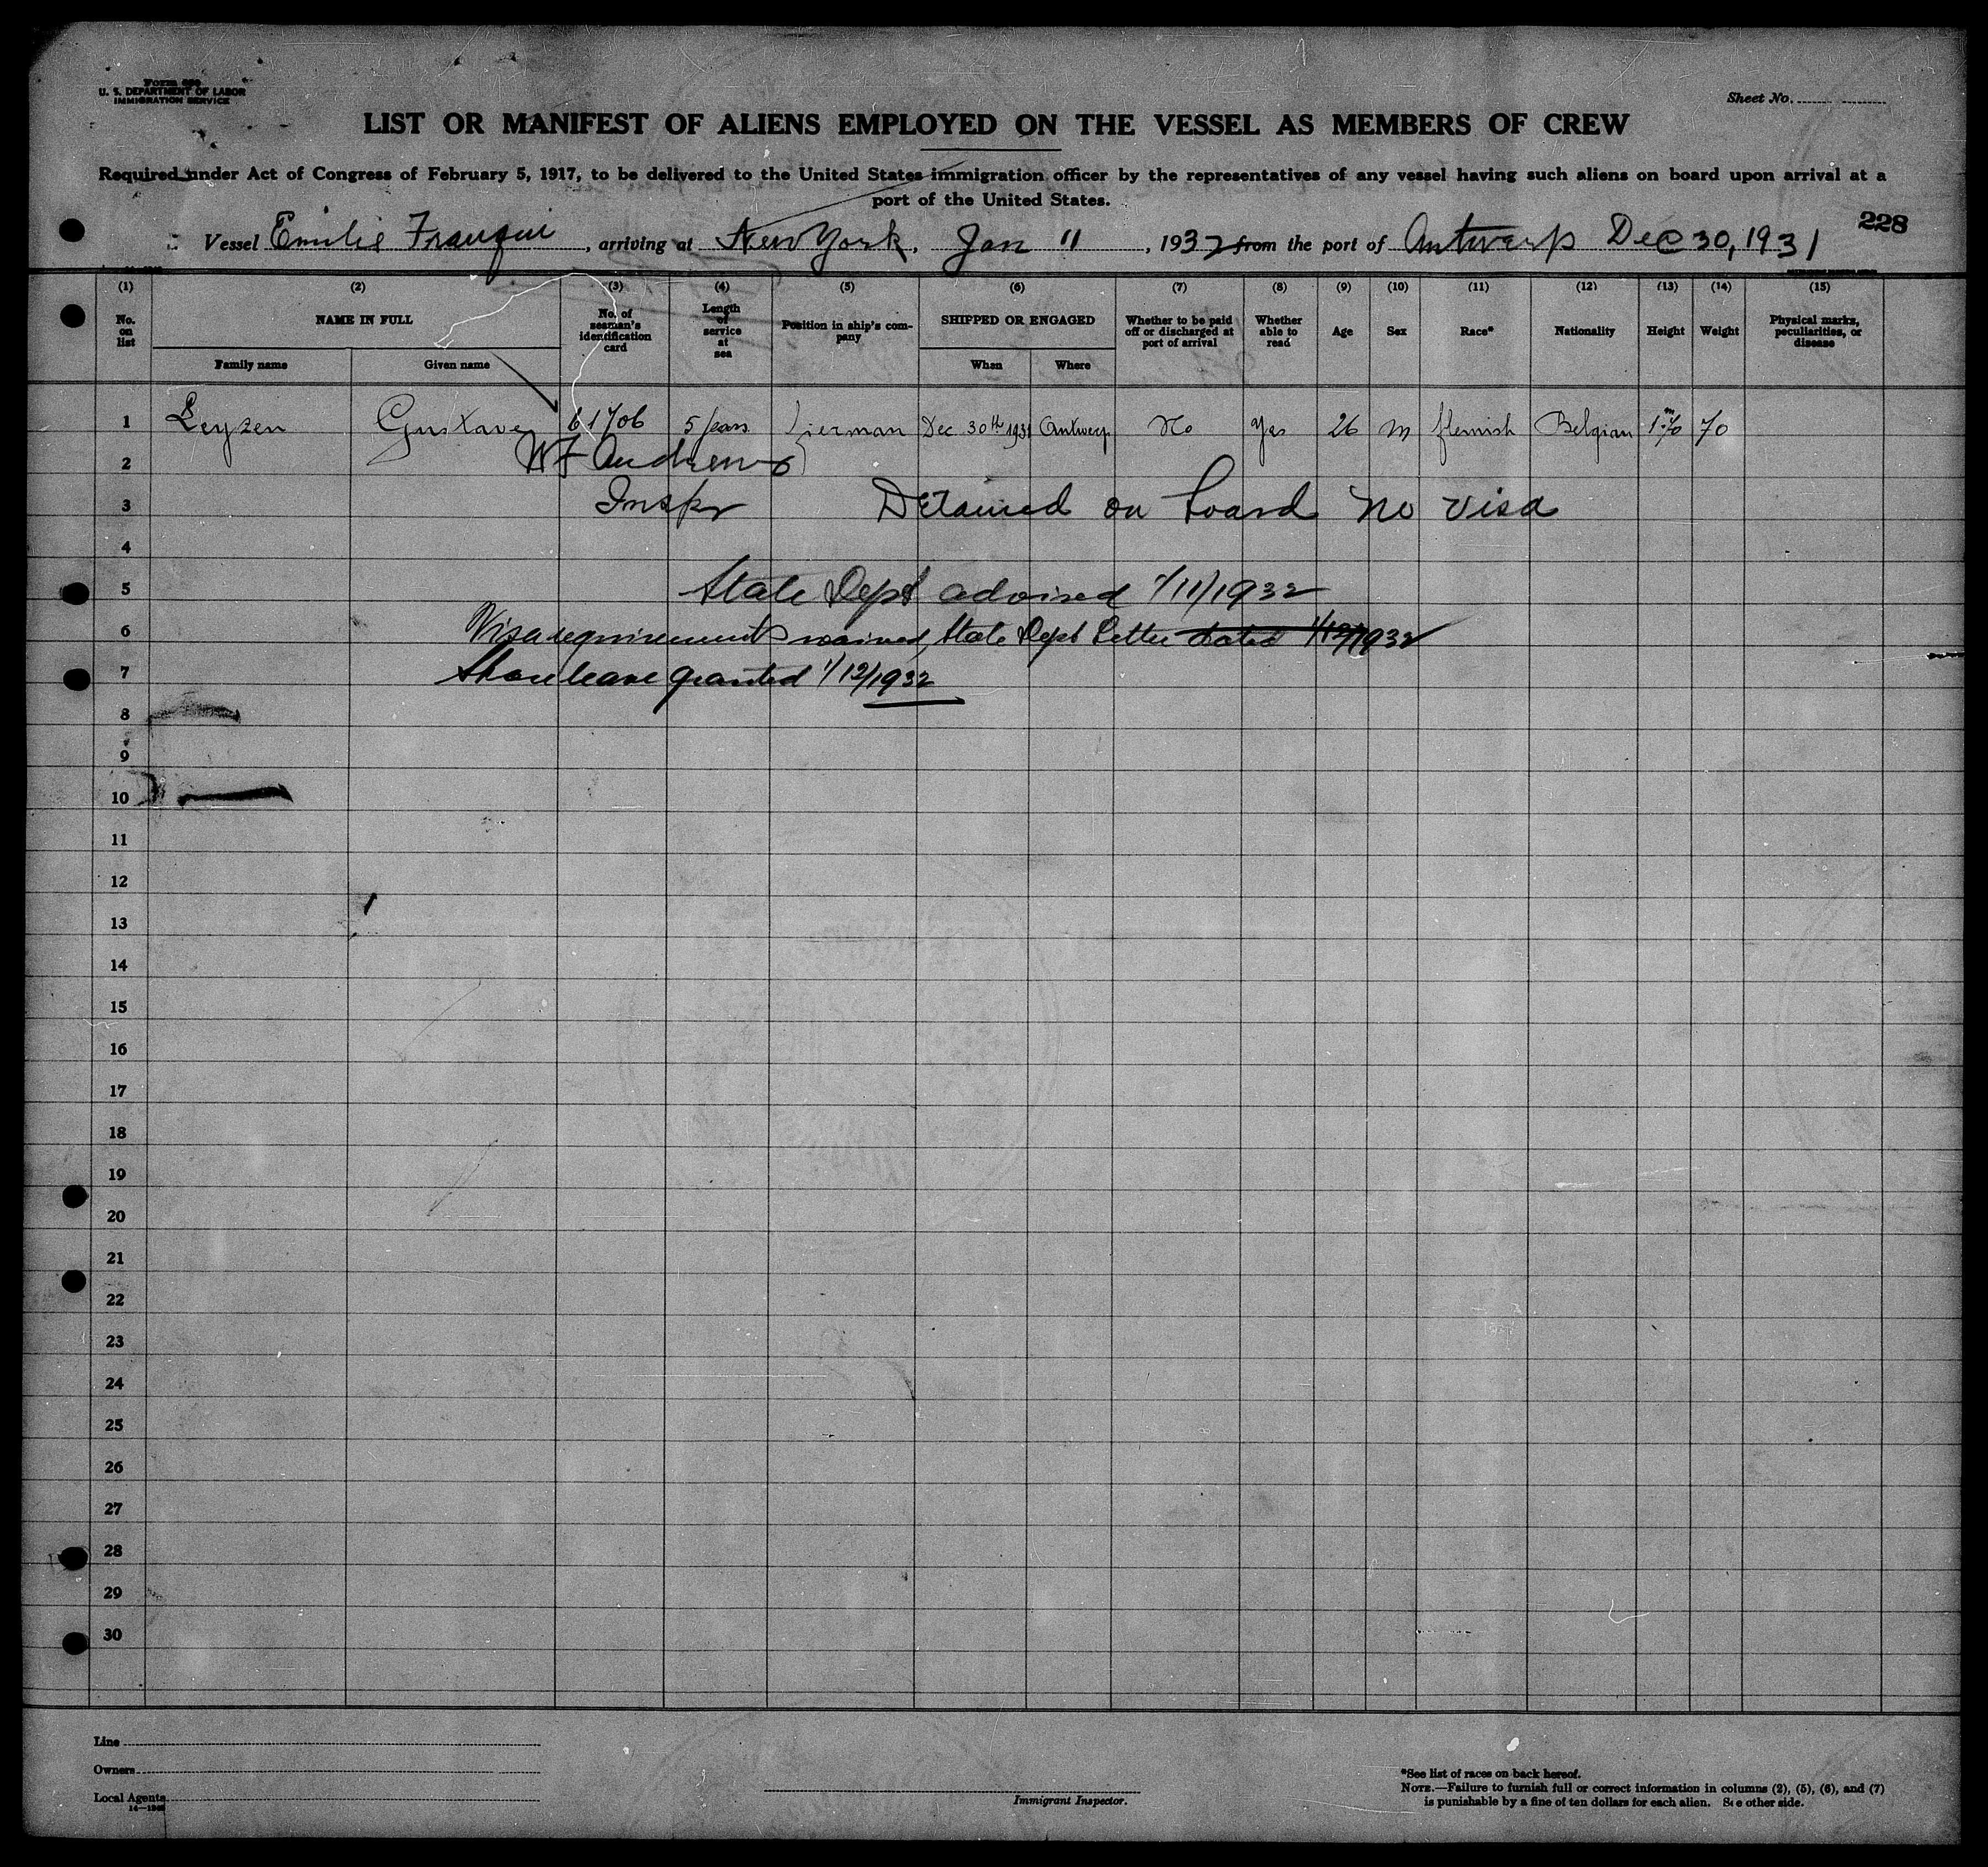 Form 680
U. S. DEPARTMENT OF LABOR
IMMIGRATION SERVICE
Sheet No.
LIST OR MANIFEST OF ALIENS EMPLOYED ON THE VESSEL AS MEMBERS OF CREW
Required under Act of Congress of February 5, 1917, to be delivered to the United States immigration officer by the representatives of any vessel having such aliens on board upon arrival at a
port of the United States.
228
Vessel Emilie Franqui, arriving at New York, Jan 11, 1932 from the port of Antwerp Dec 30, 1931
(1) (2) (3) (4) (5) (6) (7) (8) (9) (10) (11) (12) (13) (14) (15)
No. on list NAME IN FULL No. of seaman's identification card Length of service at sea Position in ship's company SHIPPED OR ENGAGED Whether to be paid off or discharged at port of arrival Whether able to read Age Sex Race* Nationality Height Weight Physical marks, peculiarities, or disease
Family name Given name When Where
1 Leyzen Gustave 61706 5 years Dec 30th 1931 Antwerp No Yes 26 M flemish Belgian 1m70 70
2 WF Andrews
3 Inspr Detained on board no visa
4
5 State Dept advised 1/11/1932
6 Visa requirements waived, State Dept Letter dated 1/12/1932
7 Shore leave granted 1/12/1932
8
9
10
11
12
13
14
15
16
17
18
19
20
21
22
23
24
25
26
27
28
29
30
Line
Owners
Local Agents
Immigrant Inspector.
*See list of races on back hereof.
NOTE.—Failure to furnish full or correct information in columns (2), (5), (6), and (7)
is punishable by a fine of ten dollars for each alien. See other side.